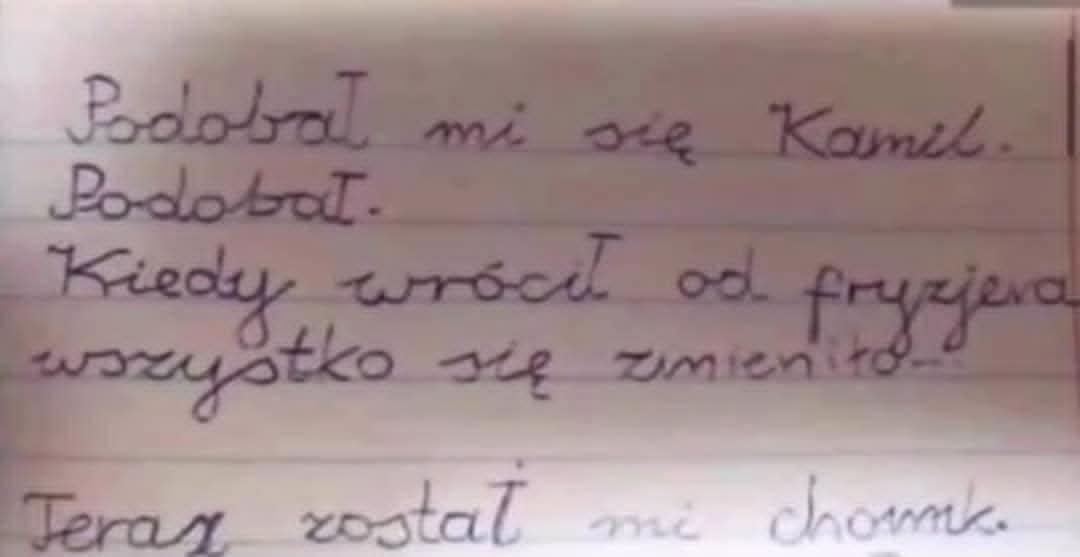 Podobał mi się Kamil.
Podobał.
Kiedy wrócił od fryzjera
wszystko się zmieniło...
Teraz został mi chomik.